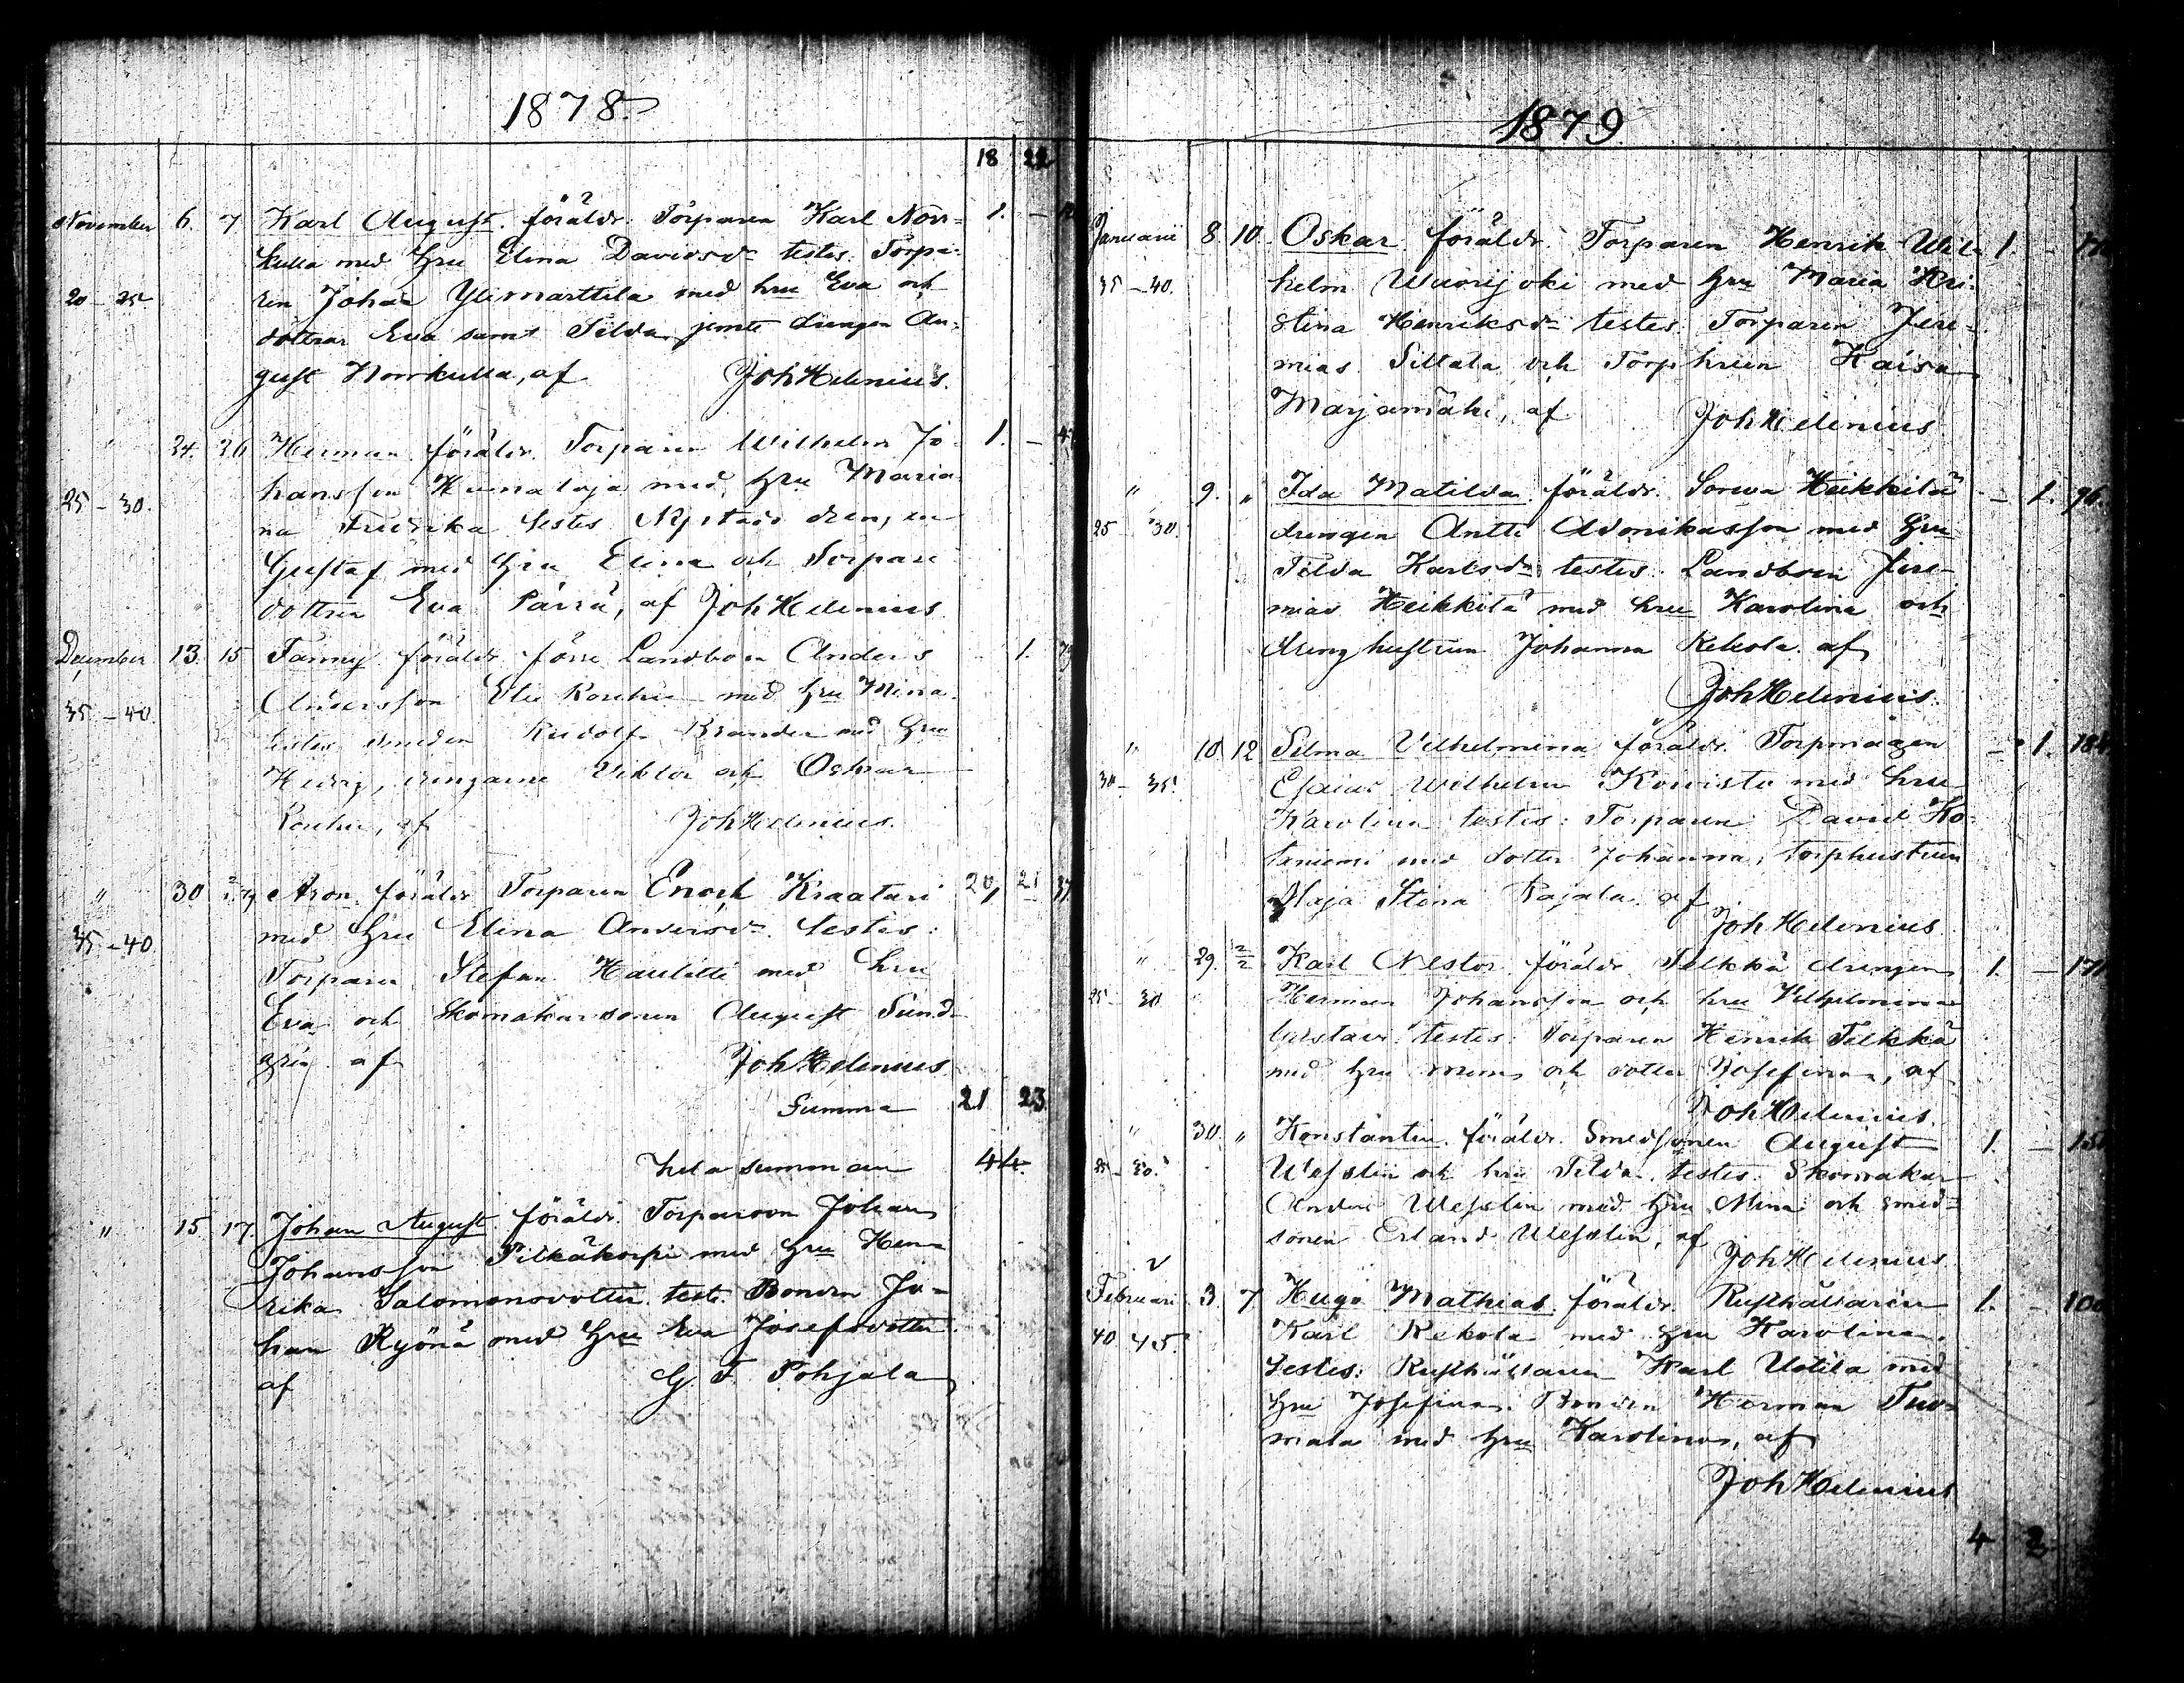 1878
18 22
November 6. 7 Karl August. föräldr. Torparen Karl Norr- 1. —
kulla med Hru Elina Davidsdr testes. Torpa-
20-25 ren Johan Ylimarttila med hru Eva och
döttrar Eva samt Tilda jemte drengen Au-
gust Norrkulla, af Joh Helenius.
" 24. 26 Herman föräldr. Torparen Wilhelm Jo- 1. —
hansson med Hru Maria
25-30. na Fredrika testes Nystads
Gustaf med Hru Elina och Torpare
dottren Eva Pärrä, af Joh Helenius
December 13. 15 Fanny föräldr förre Landboen Anders 1.
35-40. Andersson Rouhu med hru Mina
testes smeden Rudolf Brander med Hru
Hedvig, drengarne Viktor och Oskar
Rouhu, af Joh Helenius.
" 30 Aron. föräldr Torparen Enoch Kraatari 20, 21 37
35-40. med Hru Elina Andersdr. testes:
Torparen Stefan med hru
Eva och Skomakarsonen August Sund-
gren af Joh Helenius
Summa 21 23
hela summan 44.
" 15. 17. Johan August. föräldr. Torparson Johan
Johansson Pitkäkorpi med Hru Hen-
rika Salomonsdotter. test. Bonden Jo-
han Ryönä med Hru Eva Josefsdotter
af G. F. Pohjala
1879
Januarii 8 10. Oskar. föräldr. Torparen Henrik Wil- 1. -
35-40. helm Wuorijoki med Hru Maria Kri-
stina Henriksdr testes. Torparen Jere-
mias Sillala och Torphrun Kaisa
Marjamäki, af Joh Helenius
" 9. " Ida Matilda. föräldr. Sorwa Heikkilä - 1. 96.
25-30. drengen Antti Adonikasson med Hru
Tilda Karlsdr testes. Landboen Jere-
mias Heikkilä med hru Karolina och
drenghustrun Johanna Rekola. af
Joh Helenius.
" 10 12 Selma Vilhelmina föräldr. Torpmågen - 1. 184
30-35. Esaias Wilhelm Koivisto med hru
Karolina testes: Torparen David Ko-
taniemi med dotter Johanna, torphustrun
Maja Stina Rajala. af
Joh Helenius
" 29. 2/2 Karl Nestor. föräldr. Pelkkä drengen 1. — 171
25-30 Herman Johansson och hru Vilhelmina
Gustava testes. Torparen Henrik Pelkkä
med hru Mina och dotter Josefina, af
Joh Helenius.
" 30. " Konstantin. föräldr. Smedsonen August 1. —
25-30. Wesslin och hru Tilda. testes. Skomakar
Anders Wesslin med Hru Mina och smed-
sonen Erland Wesslin, af
Joh Helenius.
Februari 3. 7 Hugo Mathias. föräldr. Rusthållaren 1. - 100
40 45 Karl Rekola med Hru Karolina.
testes: Rusthållaren Karl Uotila med
Hru Josefina. Bonden Herman Tuo-
mala med Hru Karolina, af
Joh Helenius
4 3